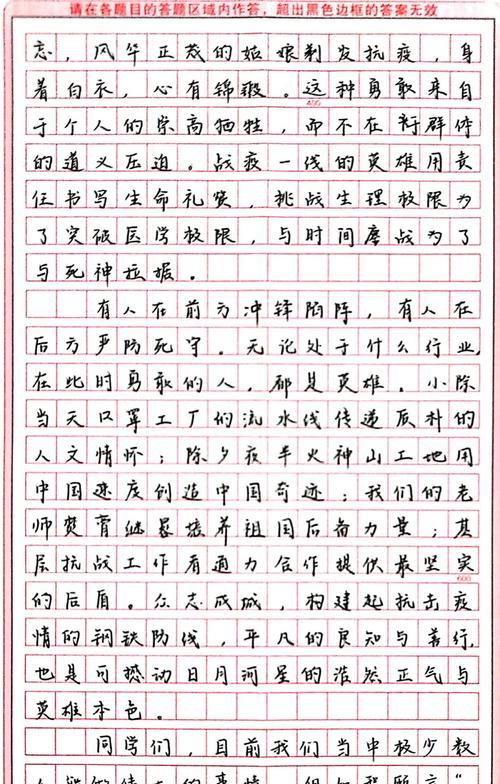 请在各题目的答题区域内作答，超出黑色边框的答案无效
忘，风华正茂的姑娘剃发抗疫，身
着白衣，心有锦缎。这种勇敢来自
400
于个人的崇高牺牲，而不在群体
的道义压迫。战疫一线的英雄用责
任书写生命礼赞，挑战生理极限为
了突破医学极限，与时间鏖战为了
与死神拉据。
有人在前方冲锋陷阵，有人在
后方严防死守。无论处于什么行业，
在此时勇敢的人，都是英雄。小除
当天口罩工厂的流水线传递质朴的
人文情怀；除夕夜半火神山工地用
中国速度创造中国奇迹；我们的老
师焚膏继晷培养祖国后备力量；基
层抗战工作者通力合作提供最坚实
600
的后盾。众志成城，构建起抗击疫
情的钢铁防线，平凡的良知与善行，
也是可撼动日月河星的浩然正气与
英雄本色。
同学们，目前我们当中极少数